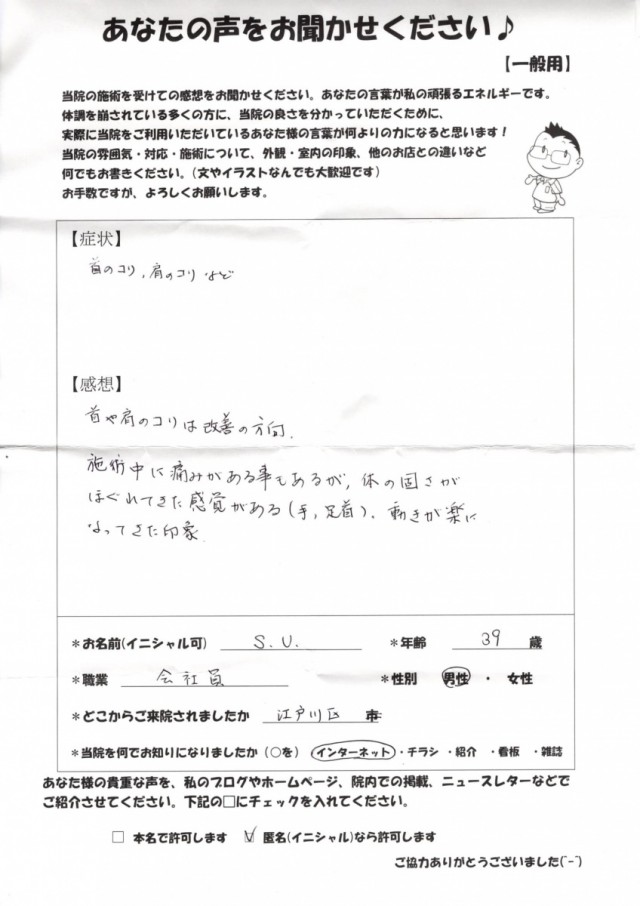 あなたの声をお聞かせください♪
【一般用】
当院の施術を受けての感想をお聞かせください。あなたの言葉が私の頑張るエネルギーです。
体調を崩されている多くの方に、当院の良さを分かっていただくために、
実際に当院をご利用いただいているあなた様の言葉が何よりの力になると思います！
当院の雰囲気・対応・施術について、外観・室内の印象、他のお店との違いなど
何でもお書きください。（文やイラストなんでも大歓迎です）
お手数ですが、よろしくお願いします。
【症状】
首のコリ，肩のコリ など
【感想】
首や肩のコリは改善の方向．
施術中に痛みがある事もあるが，体の固さが
ほぐれてきた感覚がある（手，足首）．動きが楽に
なってきた印象．
＊お名前(イニシャル可) S.U. ＊年齢 39 歳
＊職業 会社員 ＊性別 男性 ・ 女性
＊どこからご来院されましたか 江戸川区 市
＊当院を何でお知りになりましたか（○を） インターネット ・チラシ ・紹介 ・看板 ・雑誌
あなた様の貴重な声を、私のブログやホームページ、院内での掲載、ニュースレターなどで
ご紹介させてください。下記の□にチェックを入れてください。
□ 本名で許可します ☑ 匿名(イニシャル)なら許可します
ご協力ありがとうございました(^-^)